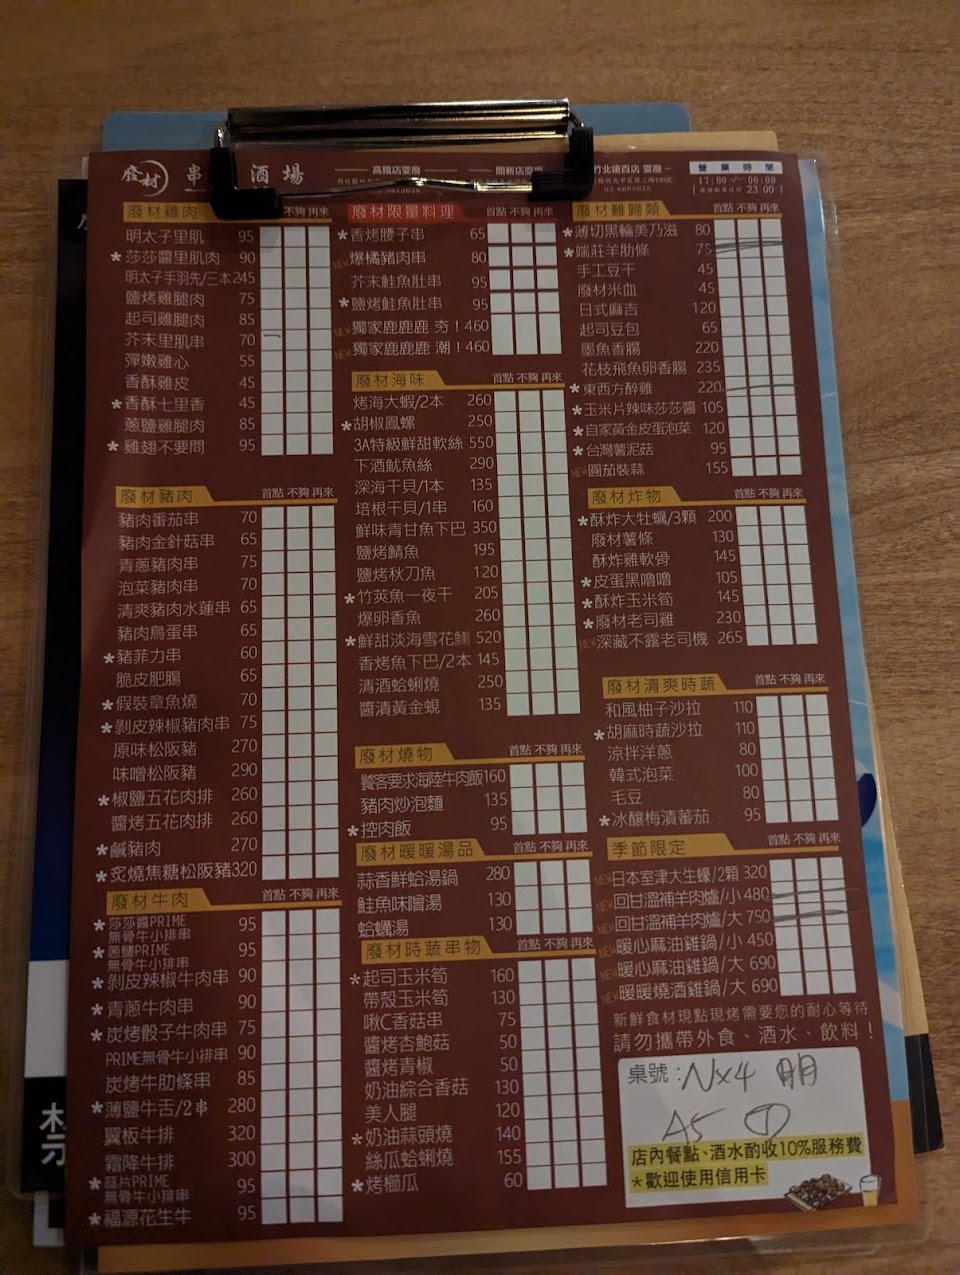 發材 串 酒場
高鐵店
關新店
竹北遠百店
營業時間
17:00 00:00
23:00
廢材雞肉 不夠 再來
明太子里肌 95
*莎莎醬里肌肉 90
明太子手羽先/三本 245
鹽烤雞腿肉 75
起司雞腿肉 85
芥末里肌串 70
彈嫩雞心 55
香酥雞皮 45
*香酥七里香 45
蔥鹽雞腿肉 85
*雞翅不要問 95
廢材豬肉 首點 不夠 再來
豬肉番茄串 70
豬肉金針菇串 65
青蔥豬肉串 75
泡菜豬肉串 70
清爽豬肉水蓮串 65
豬肉鳥蛋串 65
*豬菲力串 60
脆皮肥腸 65
*假裝章魚燒 70
*剝皮辣椒豬肉串 75
原味松阪豬 270
味噌松阪豬 290
*椒鹽五花肉排 260
醬烤五花肉排 260
*鹹豬肉 270
*炙燒焦糖松阪豬 320
廢材牛肉 首點 不夠 再來
*莎莎醬PRIME
無骨牛小排串 95
*蔥鹽PRIME
無骨牛小排串 95
*剝皮辣椒牛肉串 90
*青蔥牛肉串 90
*炭烤骰子牛肉串 75
PRIME無骨牛小排串 90
炭烤牛肋條串 85
*薄鹽牛舌/2串 280
翼板牛排 320
霜降牛排 300
*蒜片PRIME
無骨牛小排串 95
*福源花生牛 95
廢材限量料理 首點 不夠 再來
*香烤腰子串 65
NEW 爆橘豬肉串 80
芥末鮭魚肚串 95
*鹽烤鮭魚肚串 95
NEW 獨家鹿鹿鹿 夯！460
NEW 獨家鹿鹿鹿 潮！460
廢材海味 首點 不夠 再來
烤海大蝦/2本 260
*胡椒鳳螺 250
3A特級鮮甜軟絲 550
下酒魷魚絲 290
深海干貝/1本 135
培根干貝/1串 160
鮮味青甘魚下巴 350
鹽烤鯖魚 195
鹽烤秋刀魚 120
*竹莢魚一夜干 205
爆卵香魚 260
*鮮甜淡海雪花鯛 520
香烤魚下巴/2本 145
清酒蛤蜊燒 250
醬漬黃金蜆 135
廢材燒物 首點 不夠 再來
饕客要求海陸牛肉飯 160
豬肉炒泡麵 135
*控肉飯 95
廢材暖暖湯品 首點 不夠 再來
蒜香鮮蛤湯鍋 280
鮭魚味噌湯 130
蛤蠣湯 130
廢材時蔬串物 首點 不夠 再來
*起司玉米筍 160
帶殼玉米筍 130
啾C香菇串 75
醬烤杏鮑菇 50
醬烤青椒 50
奶油綜合香菇 130
美人腿 120
*奶油蒜頭燒 140
絲瓜蛤蜊燒 155
*烤櫛瓜 60
廢材難歸類 首點 不夠 再來
*薄切黑輪美乃滋 80
*端莊羊肋條 75
手工豆干 45
廢材米血 45
日式麻吉 120
起司豆包 65
墨魚香腸 220
花枝飛魚卵香腸 235
*東西方醉雞 220
*玉米片辣味莎莎醬 105
*自家黃金皮蛋泡菜 120
*台灣薯泥菇 95
NEW 圓茄裝蒜 155
廢材炸物 首點 不夠 再來
*酥炸大牡蠣/3顆 200
廢材薯條 130
酥炸雞軟骨 145
*皮蛋黑嚕嚕 105
*酥炸玉米筍 145
*廢材老司雞 230
NEW 深藏不露老司機 265
廢材清爽時蔬 首點 不夠 再來
和風柚子沙拉 110
*胡麻時蔬沙拉 110
涼拌洋蔥 80
韓式泡菜 100
毛豆 80
*冰釀梅漬蕃茄 95
季節限定 首點 不夠 再來
NEW 日本室津大生蠔/2顆 320
NEW 回甘溫補羊肉爐/小 480
NEW 回甘溫補羊肉爐/大 750
NEW 暖心麻油雞鍋/小 450
NEW 暖心麻油雞鍋/大 690
NEW 暖暖燒酒雞鍋/大 690
新鮮食材現點現烤需要您的耐心等待
請勿攜帶外食、酒水、飲料！
桌號：N×4 明
A5 ①
店內餐點、酒水酌收10%服務費
*歡迎使用信用卡
禁